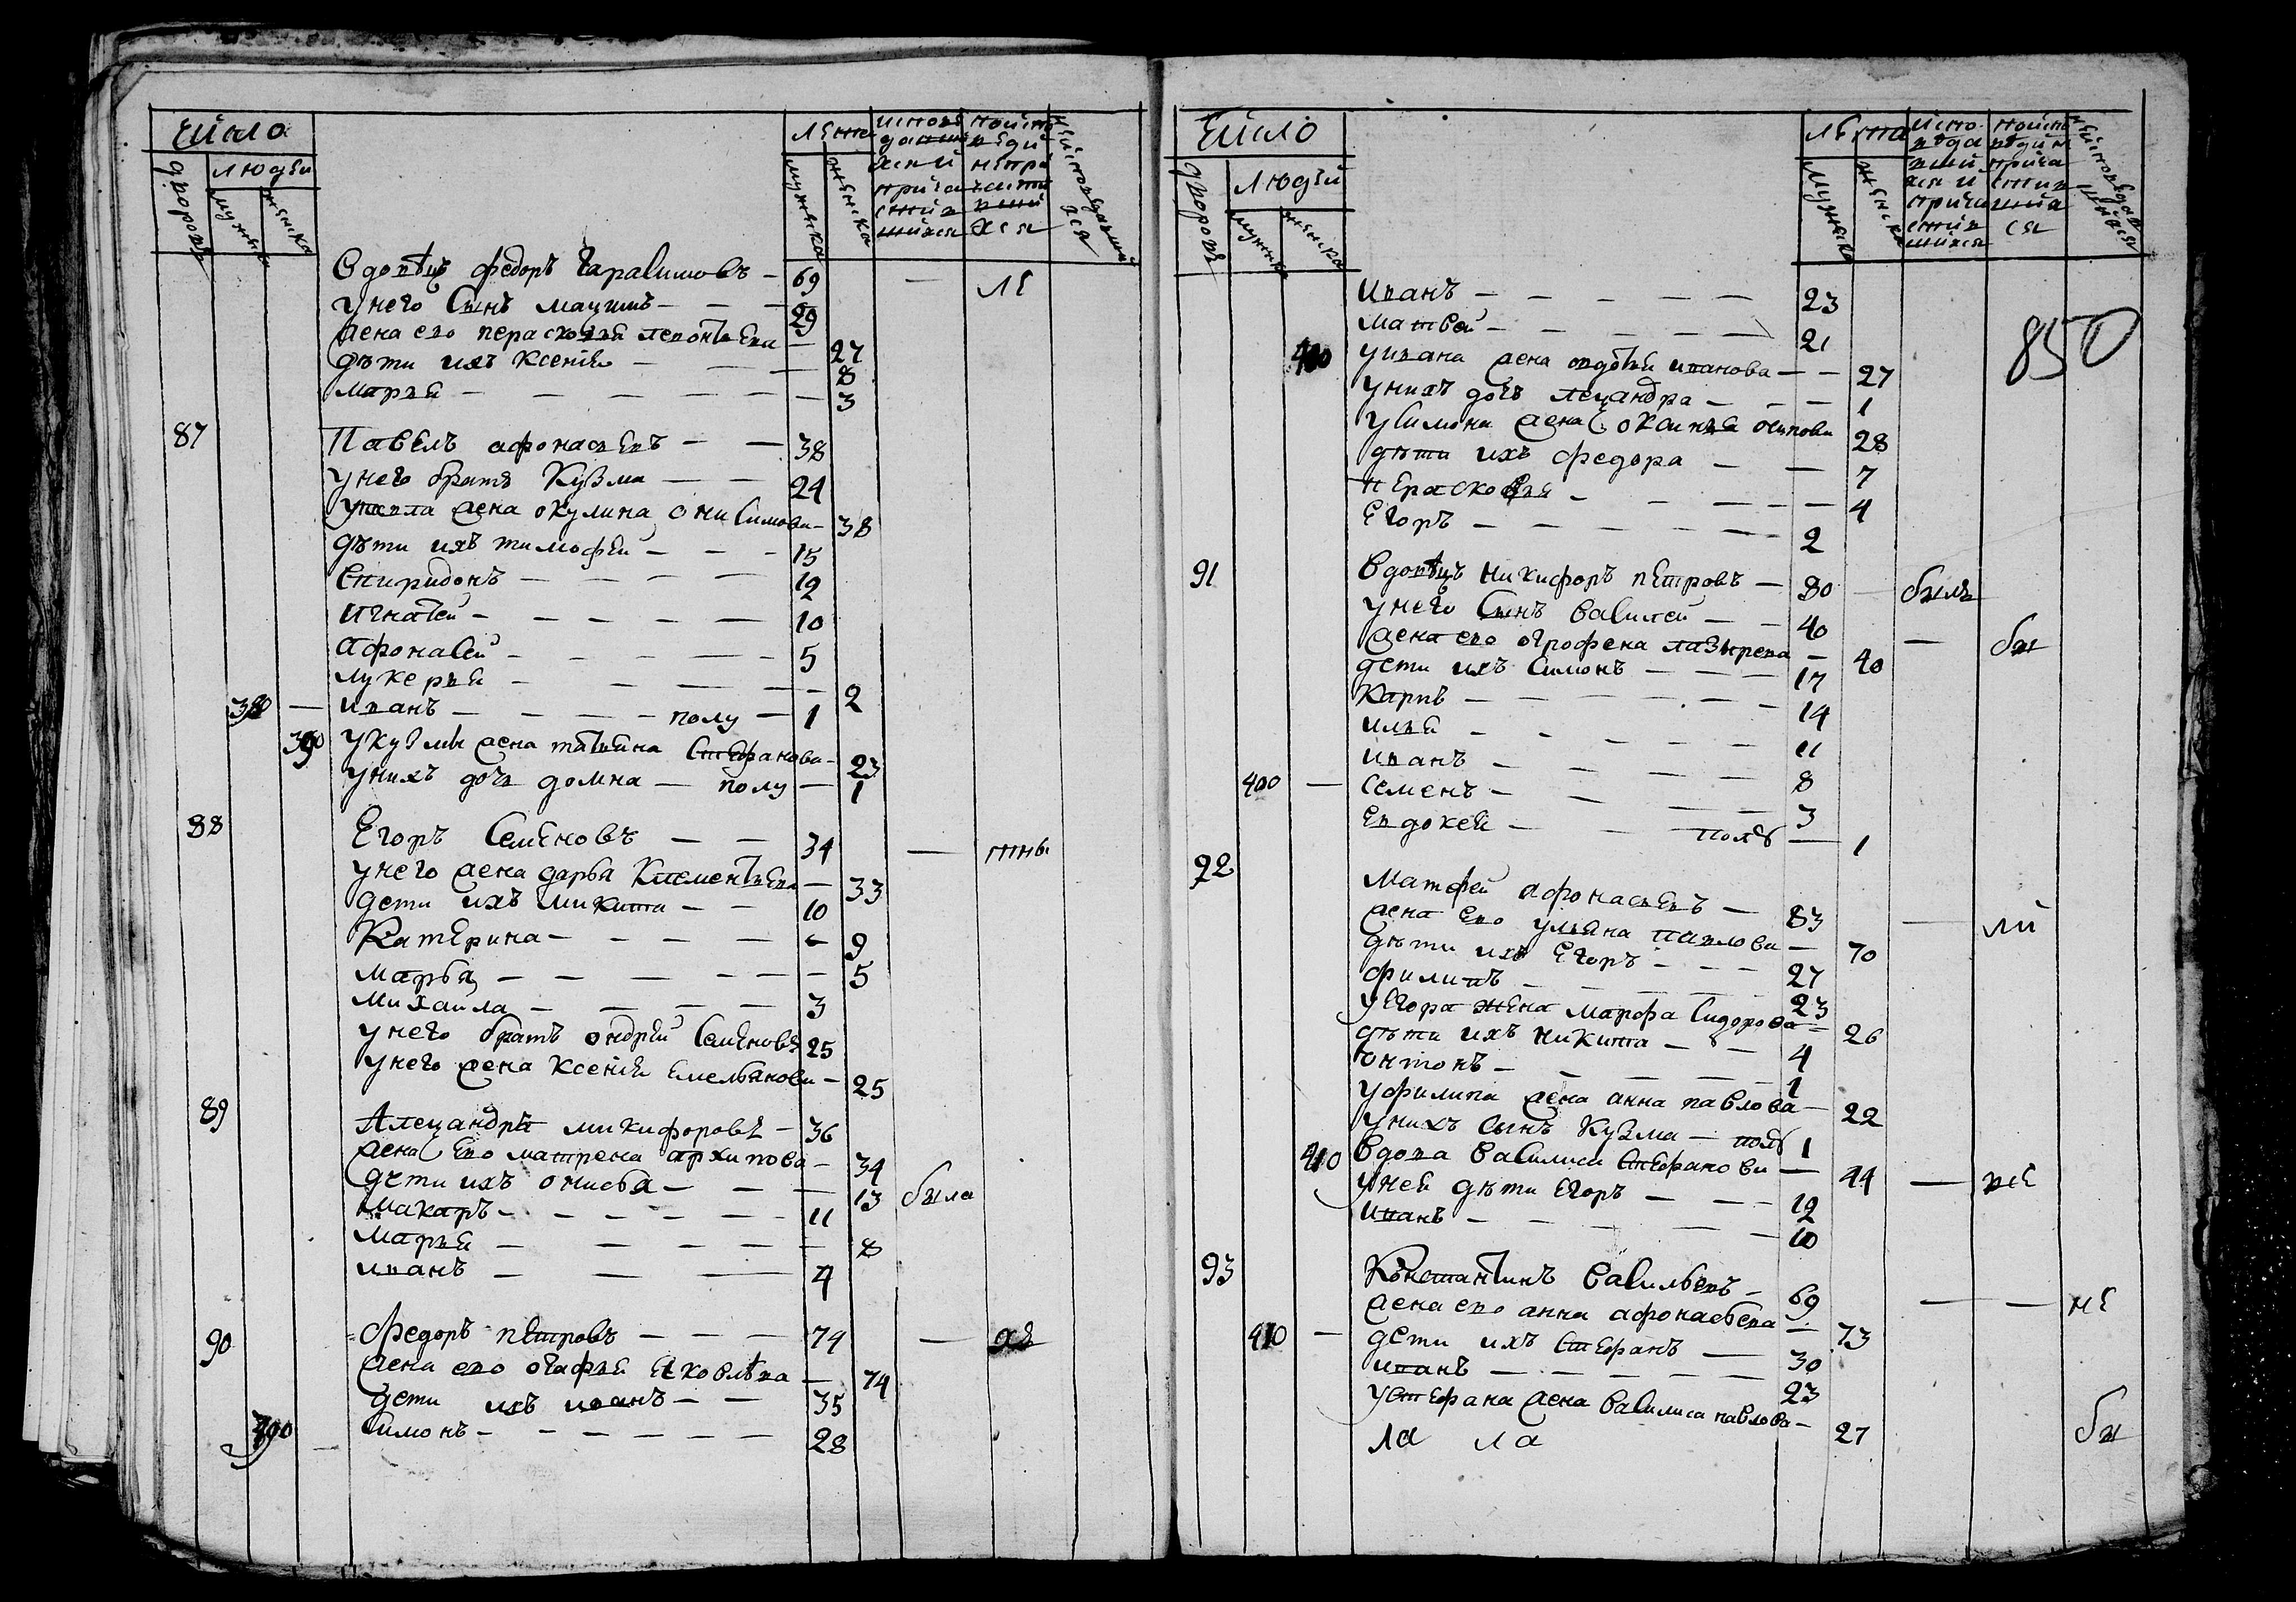 Число
лѣта
исповѣ
дашы
хся и
причас
тивших
людей
дворовъ
мужеска
женска
мужеска
женска
Вдовецъ федоръ — 69 — ли
у него Сынъ 29
жена ево перасковья леонтьева — 27
дѣти ихъ ксенія — 8
марья — 3
87 Павелъ афонасьевъ — 38
у него братъ Кузма — 24
у павла жена окулина онисимова — 38
дѣти ихъ тимофей — 15
Спиридонъ — 12
игнатей — 10
афонасей — 5
лукерья — 2
380 — иванъ — полу — 1
390 у кузмы жена татьяна Стефанова — 23
у нихъ дочь домна — полу — 1
88 Егоръ Семеновъ — 34
у него жена дарья Клементьева — 33
дети ихъ микита — 10
Катерина — 9
марья — 5
михайла — 3
у него братъ ондрей Семеновъ 25
у него жена ксенія емельянова — 25
89 Алецандръ микифоровъ — 36
жена ево матрена архипова — 34
дѣти ихъ онисья — 13 была
макаръ — 11
марья — 8
иванъ — 4
90 федоръ петровъ — 74
жена ево огафья яковлева — 74
дети ихъ иванъ — 35
390 Симонъ — 28
Число
лѣта
людей
дворовъ
мужеска
женска
мужеска
женска
850
иванъ — 23
матвей — 21
400 у ивана жена овдотья иванова — 27
у нихъ дочь лецандра — 1
у Симона жена оксинья осипова 28
дѣти ихъ федора — 7
перасковья — 4
Егоръ — 2
91 Вдовецъ никифоръ петровъ — 80 — былъ
у него Сынъ василей — 40 — бы
жена ево огрофена лазырева — 40
дети ихъ Симонъ — 17
карпъ — 14
илья — 11
иванъ — 8
400 — семенъ — 3
евдокея — полу — 1
92 матфей афонасьевъ — 83 — ли
жена ево ульяна павлова — 70
дѣти ихъ Егоръ — 27
филипъ — 23
у егора жена марфа Сидорова — 26
дѣти ихъ никита — 4
онтонъ — 1
у филипа жена анна павлова — 22
у нихъ сынъ кузма — полу 1
410 вдова василиса Стефанова — 44 — не
у ней дѣти егоръ — 12
иванъ — 10
93 Константинъ васильевъ — 69 — не
жена ево анна афонасьева — 73
410 — дети ихъ Стефанъ — 30
иванъ — 23
у стефана жена василиса павлова — 27 бы
ла ла